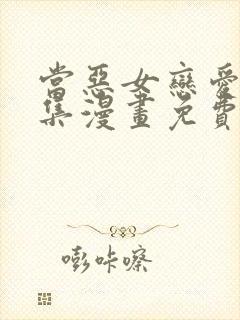 當惡女戀愛
集漫畫免費
嘭咔嚓